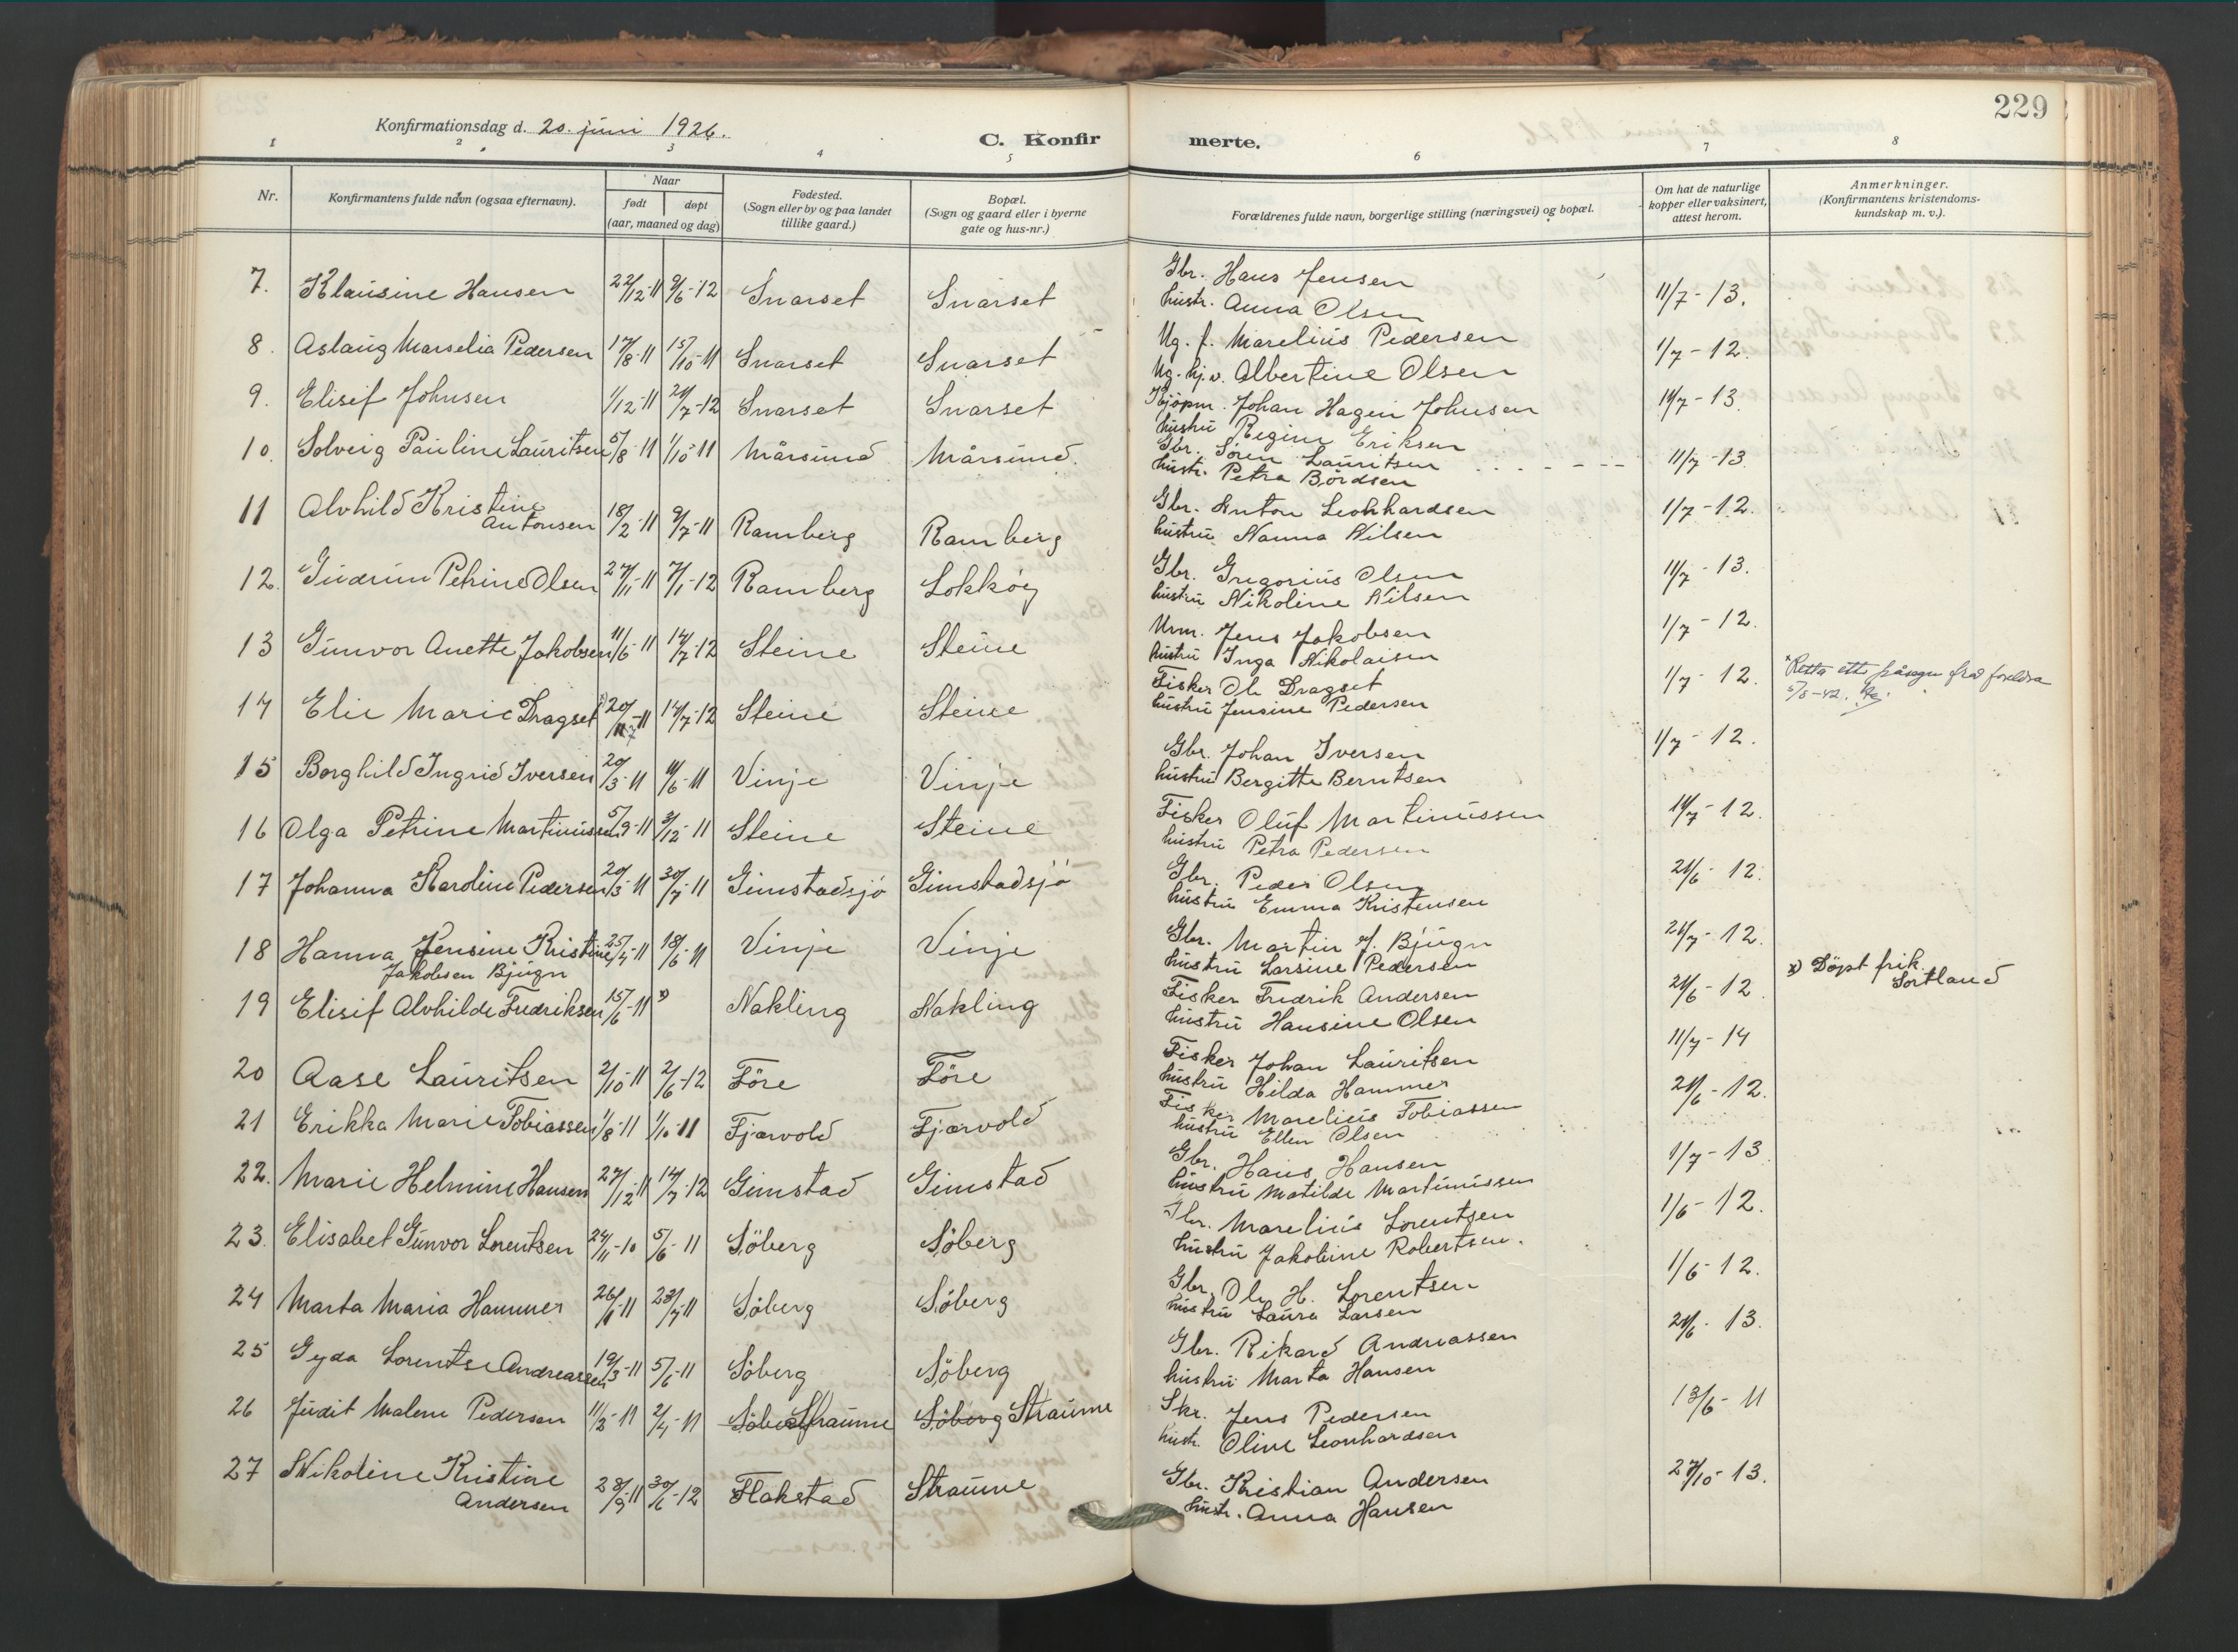 229
Konfirmationsdag d. 20. juni 1926.
C. Konfir merte.
1 2 3 4 5 6 7 8
Nr.
Konfirmantens fulde navn (ogsaa efternavn).
Naar
født døpt
(aar, maaned og dag)
Fødested.
(Sogn eller by og paa landet
tillike gaard.)
Bopæl.
(Sogn og gaard eller i byerne
gate og hus-nr.)
Forældrenes fulde navn, borgerlige stilling (næringsvei) og bopæl.
Om hat de naturlige
kopper eller vaksinert,
attest herom.
Anmerkninger.
(Konfirmantens kristendoms-
kundskap m. v.).
7. Klausine Hansen 22/12-11 9/6-12 Snarset Snarset Gbr. Hans Jensen 11/7-13.
hustr. Anna Olsen
8. Aslaug Marselia Pedersen 17/8-11 15/10-11 Snarset Snarset Ug. f. Marelius Pedersen 1/7-12.
Ug. kj.v. Albertine Olsen
9. Elisif Johnsen 1/12-11 21/7-12 Snarset Snarset Kjöpm. Johan Hagen Johnsen 14/7-13.
hustru Regine Eriksen
10. Solveig Pauline Lauritsen 5/8-11 1/10-11 Mårsund Mårsund. Gbr. Sören Lauritsen 11/7-13
hustr. Petra Bördsen
11 Alvhild Kristine
Antonsen 18/2-11 9/7-11 Ramberg Ramberg Gbr. Anton Leonhardsen 1/7-12.
hustru Hanna Nilsen
12. Gudrun Petrine Olsen 27/11-11 7/1-12 Ramberg Lokköy Gbr. Gregorius Olsen 11/7-13.
hustru Nikoline Nilsen
13 Gunvor Anette Jakobsen 11/6-11 14/7-12 Steine Steine Urm. Jens Jakobsen 1/7-12.
hustru Inga Nikolaisen
14 Elie Marie Dragset x) 20/7-11 14/7-12 Steine Steine Fisker Ole Dragset 1/7-12. x Retta ett påsegn frå foreldra
hustru Jensine Pedersen 5/5-42.
15 Borghild Ingrid Iversen 20/3-11 11/6-11 Vinje Vinje Gbr. Johan Iversen 1/7-12.
hustru Bergitte Berntsen
16 Olga Petrine Martinussen 5/9-11 3/12-11 Steine Steine Fisker Oluf Martinussen 14/7-12.
hustru Petra Pedersen
17 Johanna Karoline Pedersen 20/3-11 30/7-11 Gimstadsjö Gimstadsjö Gbr. Peder Olsen 21/6-12.
hustru Emma Kristensen
18 Hanna Jensine Kristine
Jakobsen Bjugn 25/4-11 18/6-11 Vinje Vinje Gbr. Martin J. Bjugn 21/7-12.
hustru Larsine Pedersen
19 Elisif Alvhilde Fredriksen 15/6-11 x) Nakling Nakling Fisker Fredrik Andersen 21/6-12 x) Döpt frik.
Sortland
hustru Hansine Olsen
20 Aase Lauritsen 2/10-11 2/6-12 Före Före Fisker Johan Lauritsen 11/7-14
hustru Hilda Hammer
21 Erikka Marie Tobiassen 1/8-11 1/10-11 Fjærvold Fjærvold Fisker Marelius Tobiassen 21/6-12.
hustru Ellen Olsen
22. Marie Helmine Hansen 27/12-11 14/7-12 Gimstad Gimstad Gbr. Hans Hansen 1/7-13
hustru Matilde Martinussen
23. Elisabet Gunvor Lorentsen 24/11-10 5/6-11 Söberg Söberg Gbr. Marelius Lorentsen 1/6-12.
hustru Jakobine Robertsen.
24 Marta Maria Hammer 26/1-11 23/7-11 Söberg Söberg Gbr. Ole H. Lorentsen 1/6-12.
hustru Laura Larsen
25 Gyda Lorentse Andreassen 19/3-11 5/6-11 Söberg Söberg Gbr. Rikard Andreassen 21/6-13.
hustru Marta Hansen
26 Judit Malene Pedersen 11/2-11 2/4-11 Söberg Straume Söberg Straume Skr. Jens Pedersen 13/6-11
hustr. Oline Leonhardsen
27 Nikoline Kristine
Andersen 28/9-11 30/6-12 Flakstad Straume Gbr. Kristian Andersen 27/10-13.
hustr. Anna Hansen